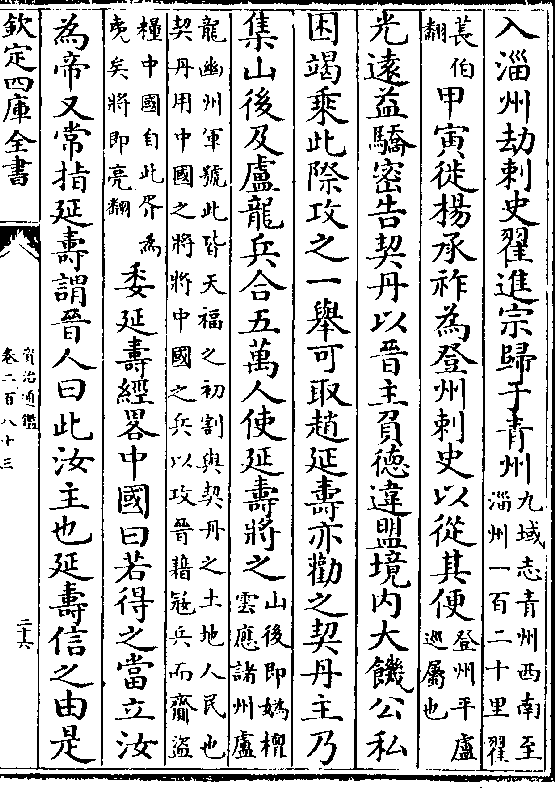 入淄州劫刺史翟進宗歸于青州九域志青州西南至淄州一百二十里翟
萇伯翻甲寅徙楊承祚為登州刺史以從其便登州平盧巡屬也
光遠益驕密告契丹以晉主負德違盟境內大饑公私
困竭乘此際攻之一舉可取趙延壽亦勸之契丹主乃
集山後及盧龍兵合五萬人使延壽將之山後即媯檀雲應諸州盧
龍幽州軍號此皆天福之初割與契丹之土地人民也契丹用中國之將將中國之兵以攻晉藉寇兵而齎盜
糧中國自此胥為夷矣將即亮翻委延壽經畧中國曰若得之當立汝
為帝又常指延壽謂晉人曰此汝主也延壽信之由是
欽定四庫全書
資治通鑑
卷二百八十三
二十六